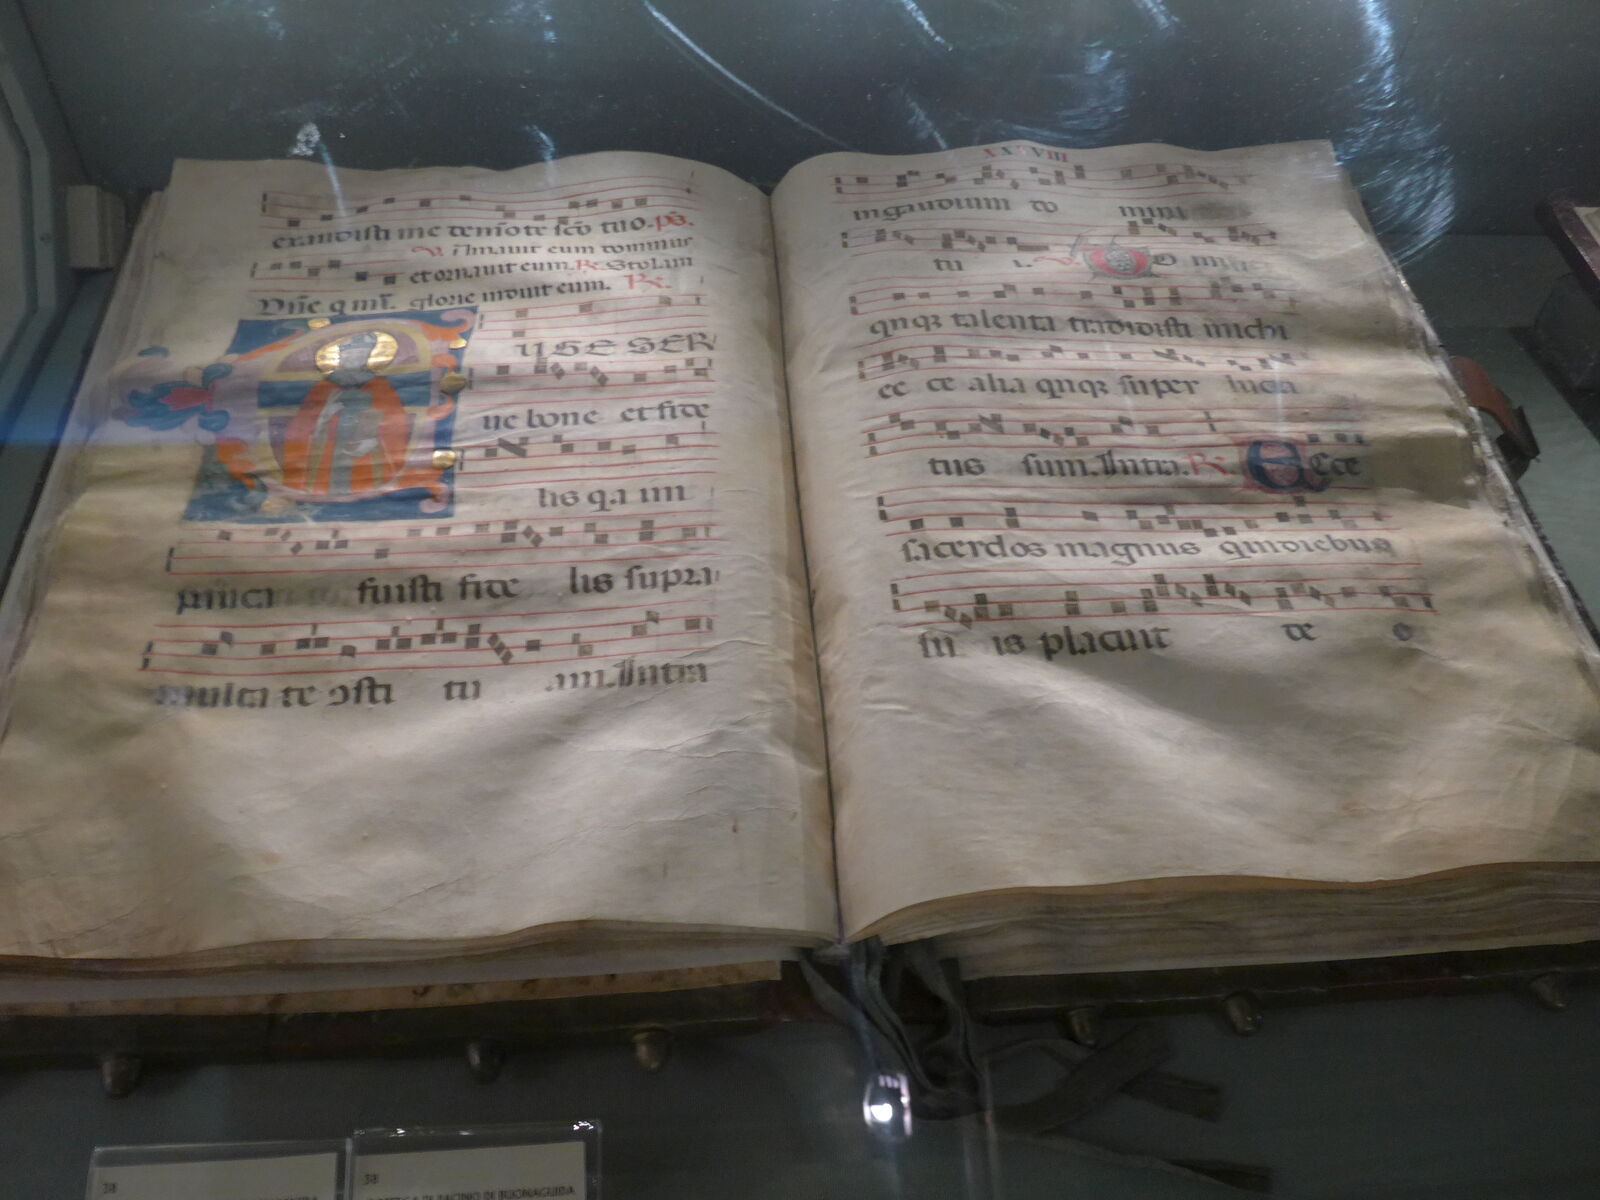 exaudisti me de monte scō tuo. ps.
℣. Amauit eum dominus
et ornauit eum. ℞. Stolam
Dñe q mī. glorie induit eum. ℞.
EUGE SER
ue bone et fide
lis q̄a in
pauca fuisti fide lis supra
multa te ꝯsti tu am. Intra
XXVIII
in gaudium do mini
tu i. ℣. Do mine
qnqꝫ talenta tradidisti michi
ec ce alia qnqꝫ super lucra
tus sum. Intra. ℞. Ecce
sacerdos magnus qui in diebus
su is placuit de o
38
38
BOTTEGA DI PACINO DI BUONAGUIDA